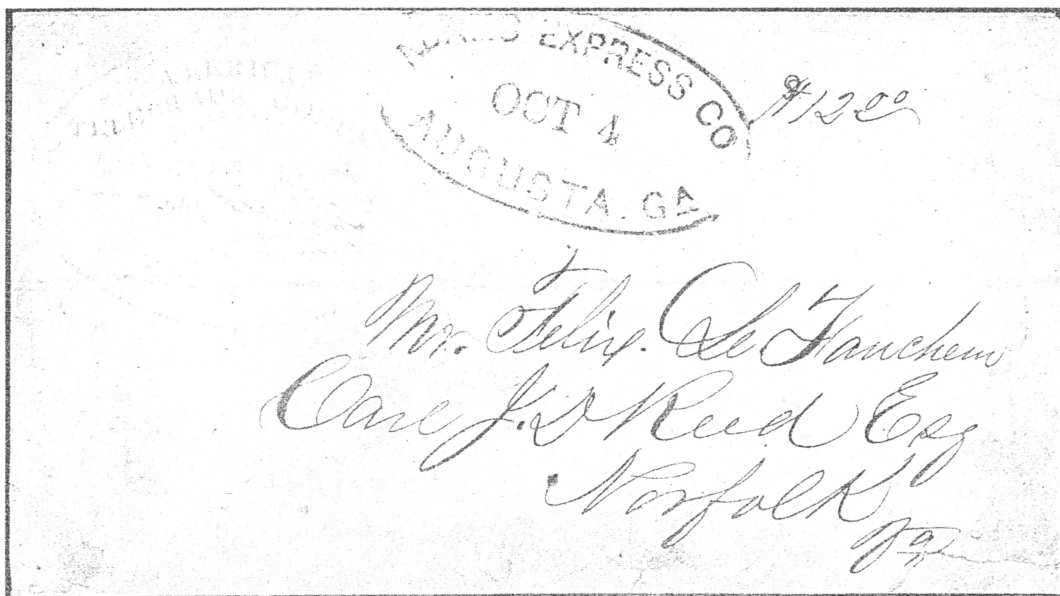 ADAMS EXPRESS CO
OCT 4
AUGUSTA. GA
$12 00
AMERICA
TELEGRAPH
Mr. Felix. De Fauchem
Care J. D Reed Esq
Norfolk
Va